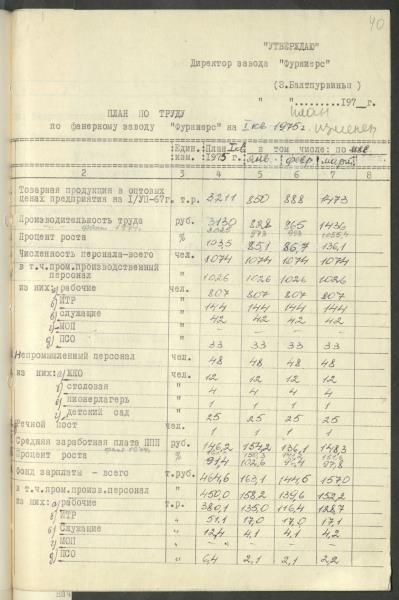 40
"УТВЕРЖДАЮ"
Директор завода "Фурниерс"
(З.Балтпурвиньш )
" "..........197__г.
план
изменен
ПЛАН ПО ТРУДУ
по фанерному заводу "Фурниерс" на I кв 1975г.
Един. изм. План I кв 1975 г. в том числе: по мес
янв. февр март
2 3 4 5 6 7 8
Товарная продукция в оптовых
ценах предприятия на I/УП-67г. т.р. 3211 850 888 1473
Производительность труда руб. 3130 828 865 1436
Процент роста % 103,3 85,1 86,7 136,1
Численность персонала-всего чел. 1074 1074 1074 1074
в т.ч.пром.производственный
персонал " 1026 1026 1026 1026
из них: а) рабочие чел. 807 807 807 807
б) ИТР " 144 144 144 144
в) служащие " 42 42 42 42
г) МОП " – – – –
д) ПСО " 33 33 33 33
Непромышленный персонал чел. 48 48 48 48
из них: а) ЖКО чел. 12 12 12 12
б) столовая " 4 4 4 4
в) пионерлагерь " 1 1 1 1
г) детский сад " 25 25 25 25
Речной пост чел. 1 1 1 1
Средняя заработная плата ППП руб. 146,2 154,2 136,1 148,3
Процент роста % 91,4 102,6 97,8
Фонд зарплаты - всего т.руб. 464,6 163,1 144,5 157,0
в т.ч.пром.произв.персонал " 450,0 158,2 139,6 152,2
из них: а) рабочие т.р. 380,1 135,0 116,4 128,7
б) ИТР " 51,1 17,0 17,0 17,1
в) Служащие " 12,4 4,1 4,1 4,2
г) МОП " – – –
д) ПСО " 6,4 2,1 2,1 2,2